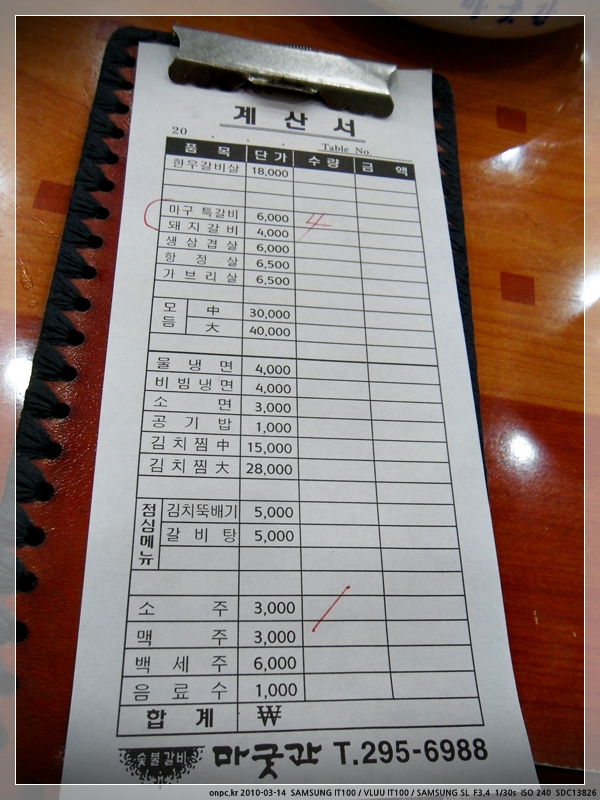 마굿간
계 산 서
20 . . . Table No.
품 목 단 가 수 량 금 액
한우갈비살 18,000
마구 특갈비 6,000 4
돼 지 갈 비 4,000
생 삼 겹 살 6,000
항 정 살 6,500
가 브 리 살 6,500
모듬 中 30,000
大 40,000
물 냉 면 4,000
비 빔 냉 면 4,000
소 면 3,000
공 기 밥 1,000
김 치 찜 中 15,000
김 치 찜 大 28,000
점심메뉴 김치뚝배기 5,000
갈 비 탕 5,000
소 주 3,000 /
맥 주 3,000
백 세 주 6,000
음 료 수 1,000
합 계 ₩
숯불갈비 마굿간 T.295-6988
onpc.kr 2010-03-14 SAMSUNG IT100 / VLUU IT100 / SAMSUNG SL F3.4 1/30s ISO 240 SDC13826